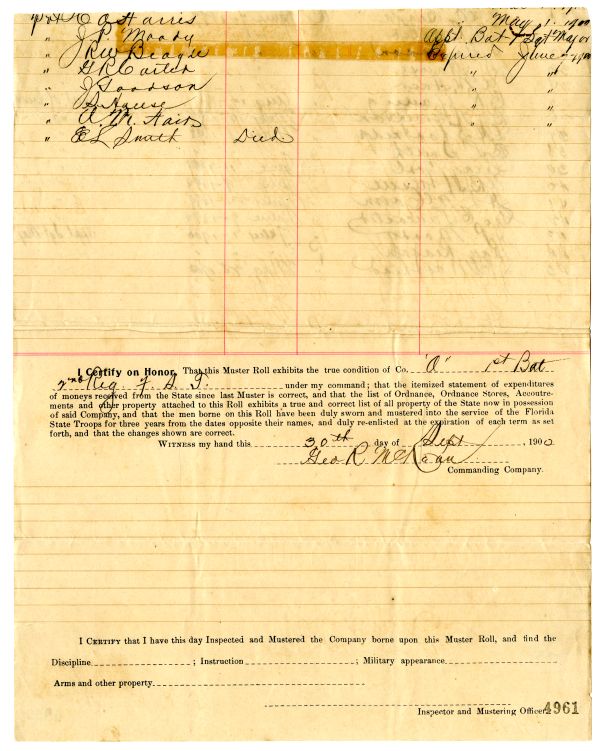 Pvt C. A. Harris May 1. 1900
" J. P. Moody Appt. Bat Sgt Maj
" Expired June
" G R Carter " "
" J. Goodson " "
" " "
" A. M. " "
" E L Smith Died
I Certify on Honor, That this Muster Roll exhibits the true condition of Co. "A" 1st Bat
2nd Reg. F. S. T. under my command; that the itemized statement of expenditures
of moneys received from the State since last Muster is correct, and that the list of Ordnance, Ordnance Stores, Accoutre-
ments and other property attached to this Roll exhibits a true and correct list of all property of the State now in possession
of said Company, and that the men borne on this Roll have been duly sworn and mustered into the service of the Florida
State Troops for three years from the dates opposite their names, and duly re-enlisted at the expiration of each term as set
forth, and that the changes shown are correct.
Witness my hand this 30th day of Sept, 1900
Geo R McKean
Commanding Company.
I Certify that I have this day Inspected and Mustered the Company borne upon this Muster Roll, and find the
Discipline ; Instruction ; Military appearance
Arms and other property
Inspector and Mustering Officer. 4961